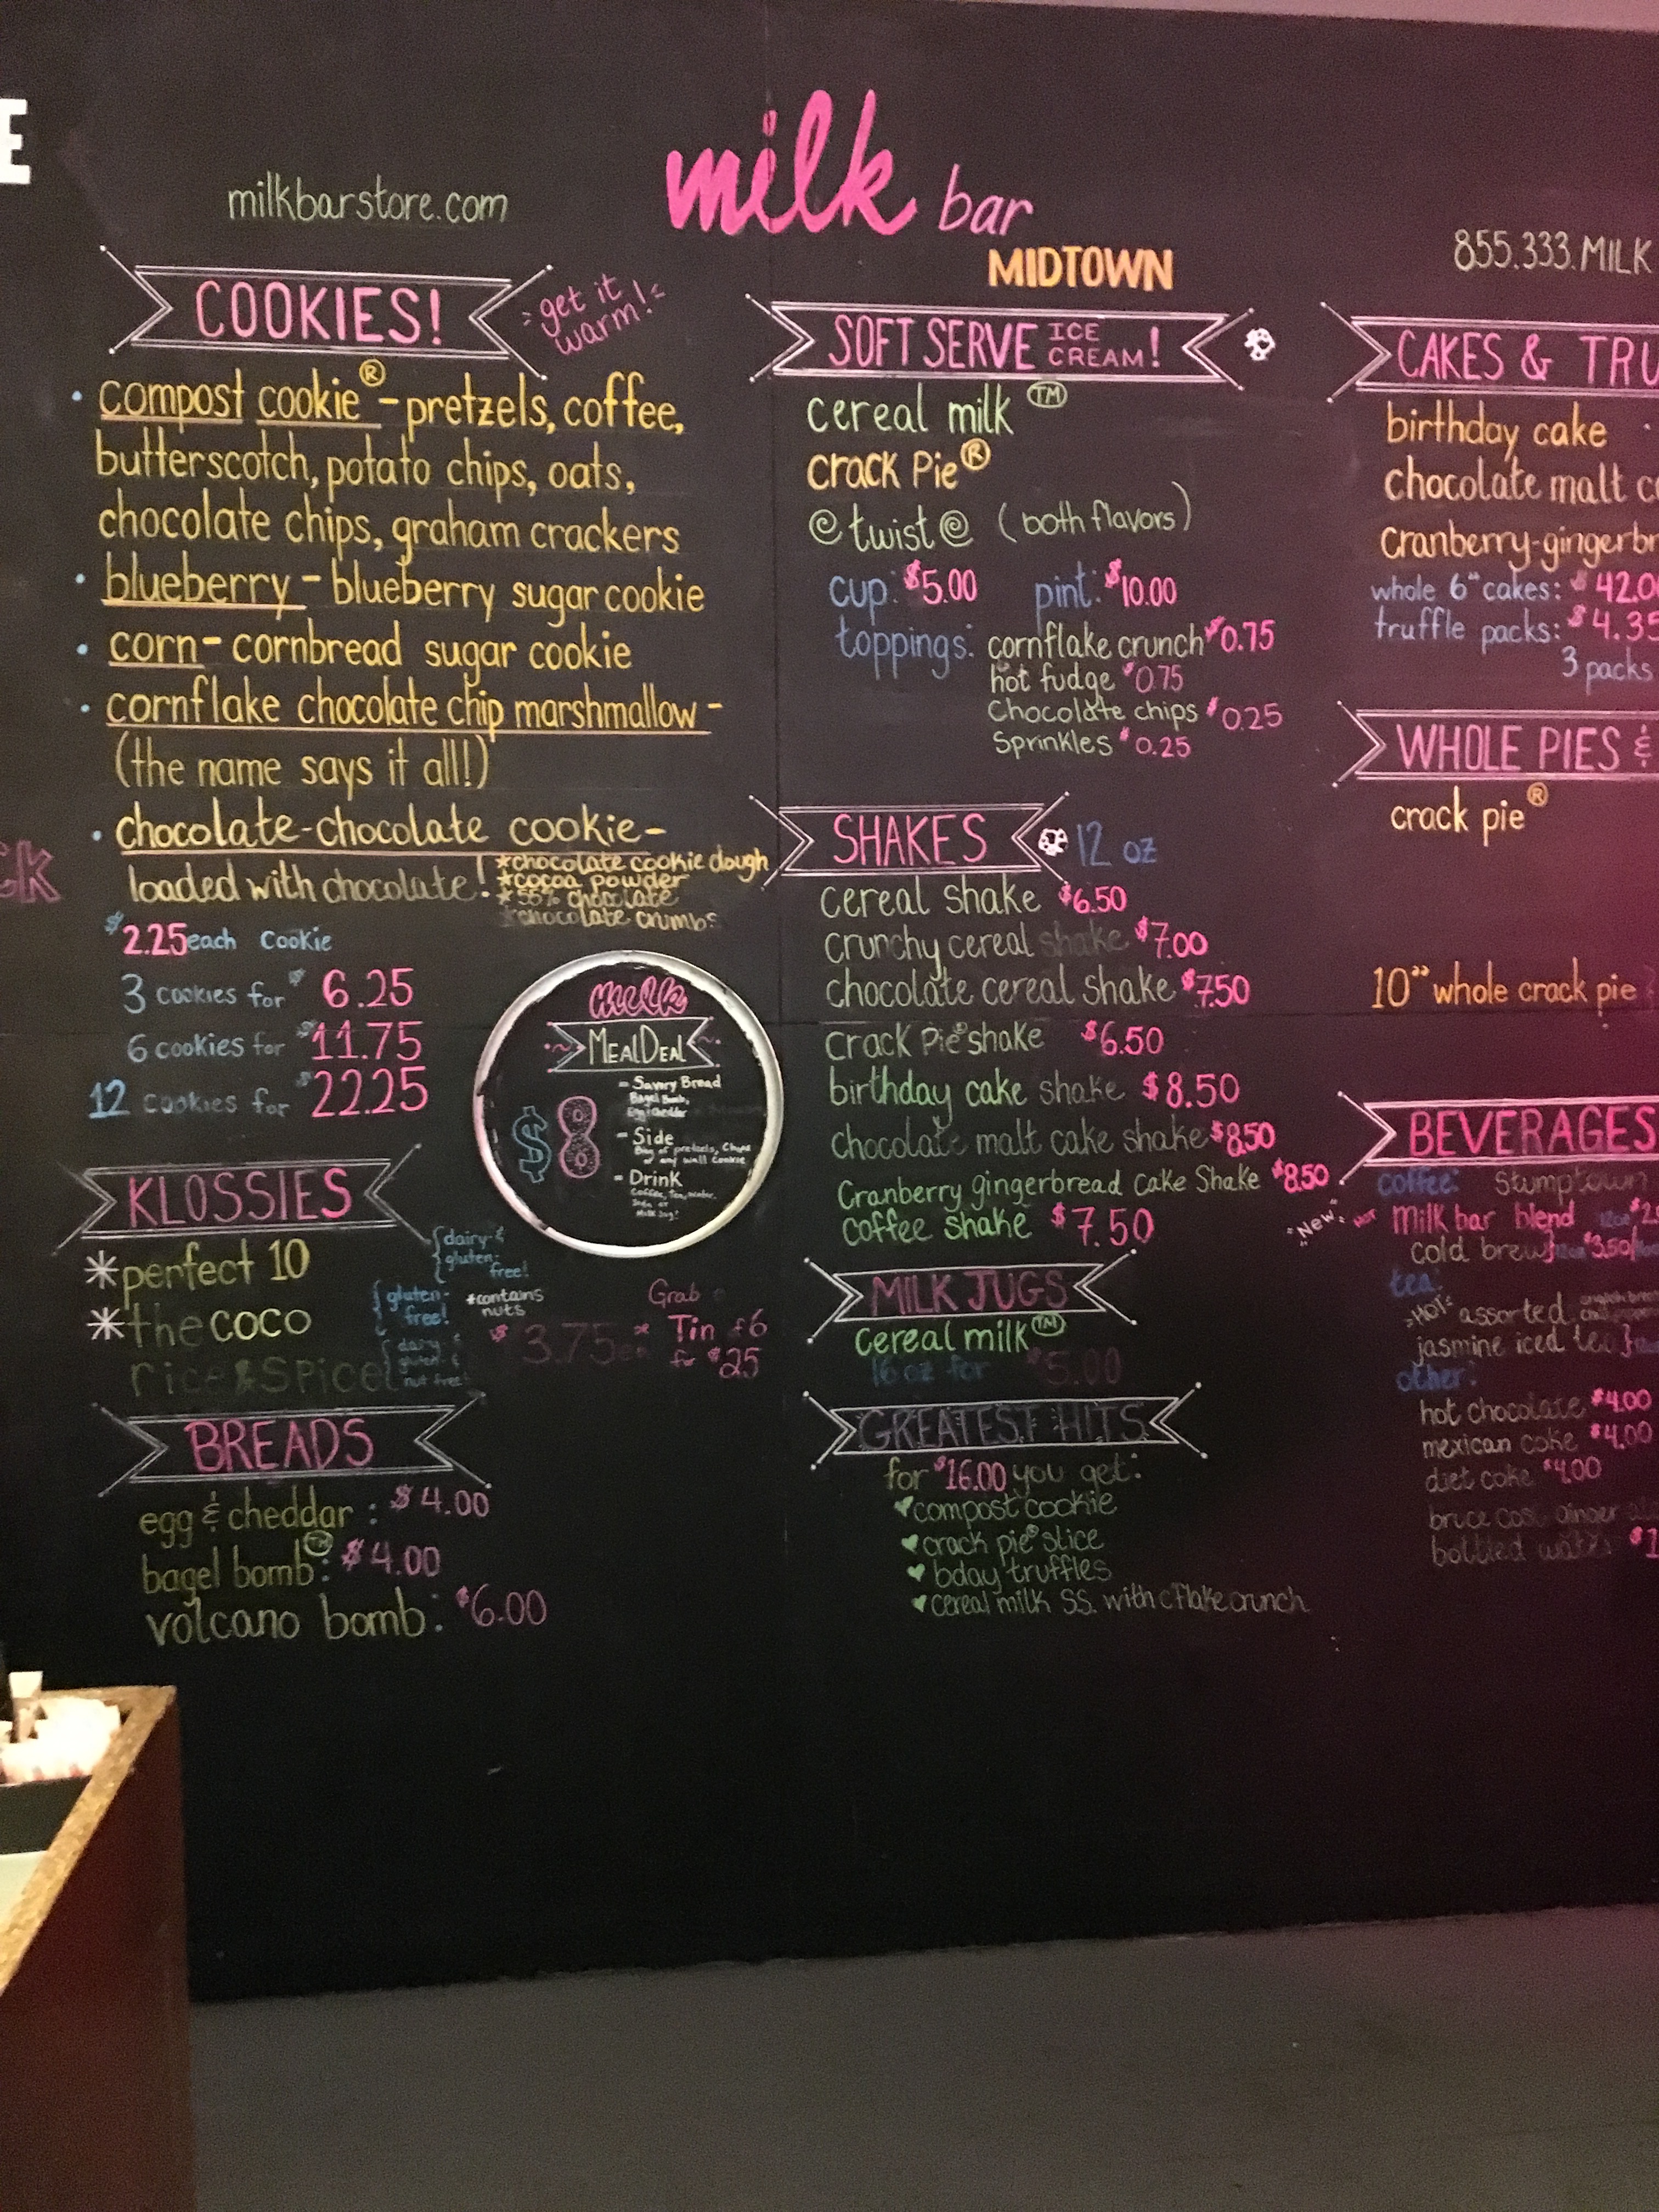 E
milkbarstore.com
milk bar
MIDTOWN
855.333.MILK
COOKIES!
get it
warm!
• compost cookie® - pretzels, coffee,
butterscotch, potato chips, oats,
chocolate chips, graham crackers
• blueberry - blueberry sugar cookie
• corn - cornbread sugar cookie
• cornflake chocolate chip marshmallow -
(the name says it all!)
• chocolate-chocolate cookie -
loaded with chocolate!
*chocolate cookie dough
*cocoa powder
*55% chocolate
*chocolate crumbs
$2.25 each cookie
3 cookies for $6.25
6 cookies for $11.75
12 cookies for $22.25
milk
MEAL DEAL
$8
- Savory Bread
Bagel Bomb,
Egg & cheddar
- Side
Bag of pretzels, Chips
or any wall cookie
- Drink
Coffee, Tea, Water,
Soda or
Milk Jug!
KLOSSIES
*perfect 10
{dairy- &
gluten-
free!
*the coco
{gluten-
free!
*contains
nuts
rice & spice
{dairy- &
gluten- &
nut free!
$3.75
Grab a
Tin of 6
for $25
BREADS
egg & cheddar: $4.00
bagel bomb™: $4.00
volcano bomb: $6.00
SOFT SERVE ICE CREAM!
cereal milk™
crack pie®
@twist@ (both flavors)
cup: $5.00 pint: $10.00
toppings: cornflake crunch $0.75
hot fudge $0.75
chocolate chips $0.25
Sprinkles $0.25
SHAKES 12 oz
cereal shake $6.50
crunchy cereal shake $7.00
chocolate cereal shake $7.50
crack pie® shake $6.50
birthday cake shake $8.50
chocolate malt cake shake $8.50
Cranberry gingerbread cake Shake $8.50
coffee shake $7.50
MILK JUGS
cereal milk™
16 oz for $5.00
GREATEST HITS
for $16.00 you get:
compost cookie
crack pie® slice
bday truffles
cereal milk S.S. with cflake crunch
CAKES & TRU
birthday cake
chocolate malt c
cranberry-gingerbr
whole 6" cakes: $42.0
truffle packs: $4.35
3 packs
WHOLE PIES &
crack pie®
10" whole crack pie
BEVERAGES
coffee: stumptown
"New" HOT milk bar blend
cold brew} $3.50
tea:
"Hot" assorted
jasmine iced tea}
other:
hot chocolate $4.00
mexican coke $4.00
diet coke $4.00
bruce cost ginger ale
bottled water $1